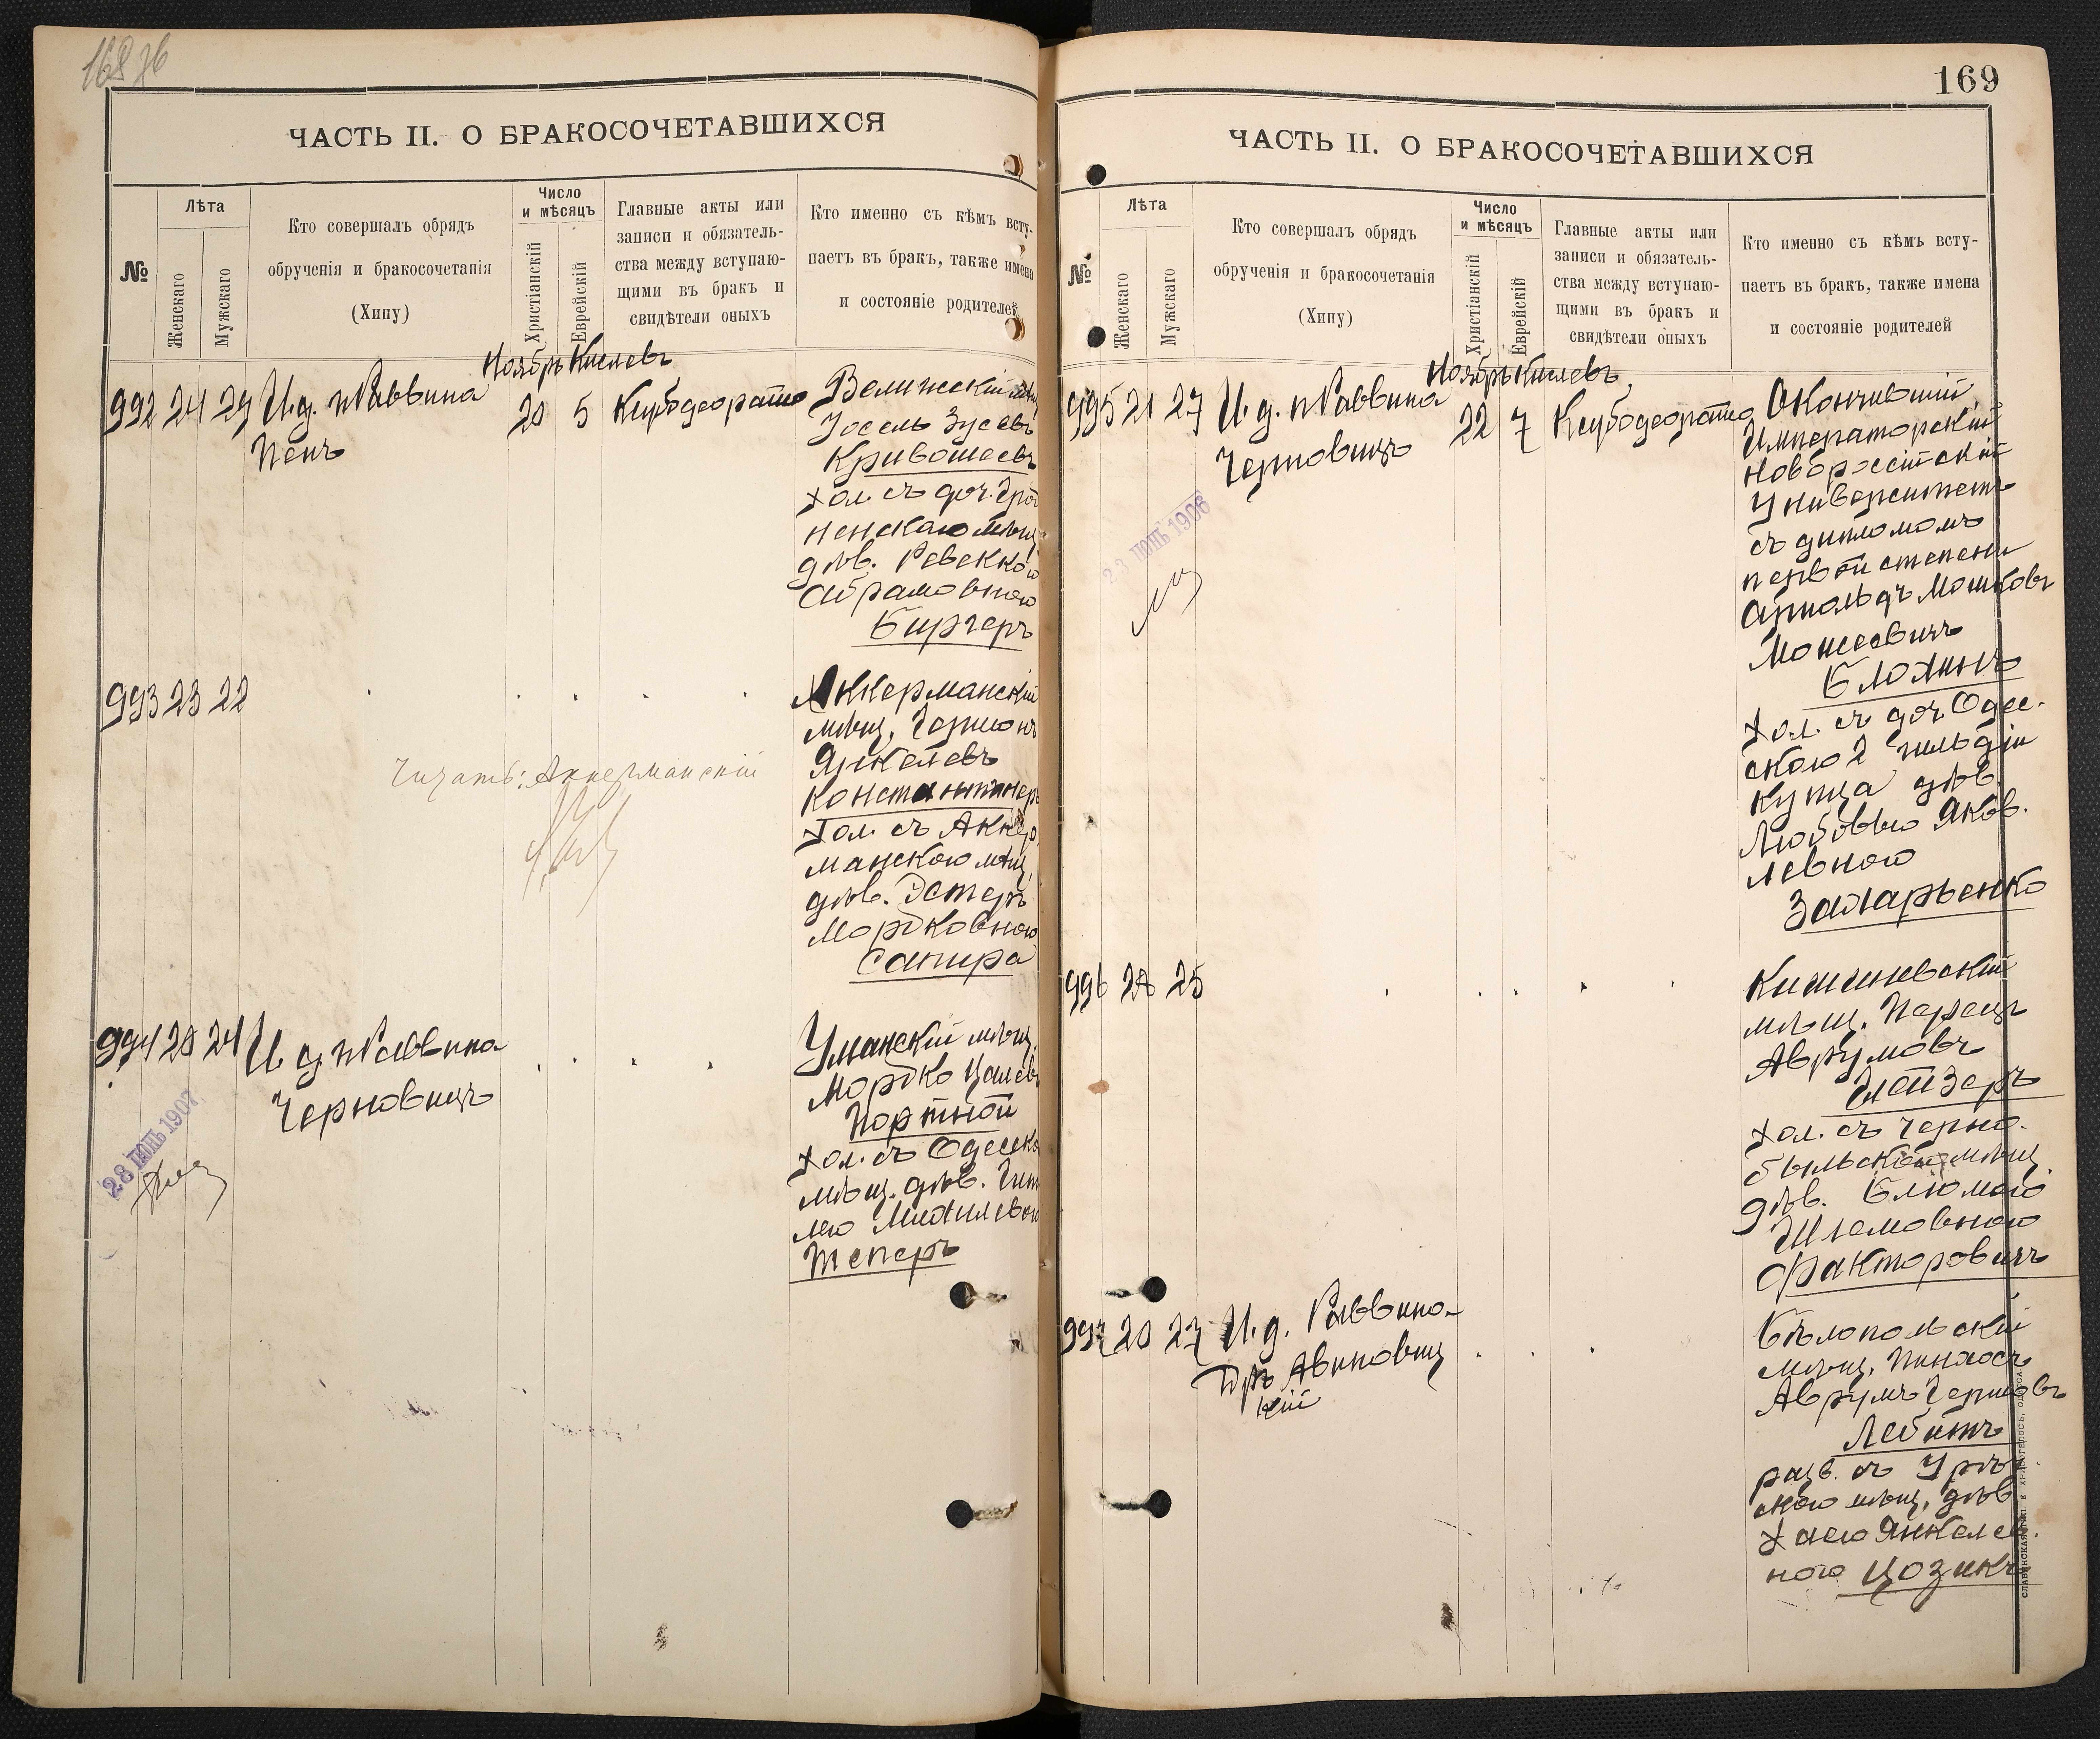 ЧАСТЬ II. О БРАКОСОЧЕТАВШИХСЯ
№
Лѣта
Женскаго
Мужскаго
Кто совершалъ обрядъ
обрученія и бракосочетанія
(Хипу)
Число
и мѣсяцъ
Христіанскій
Еврейскій
Главные акты или
записи и обязатель-
ства между вступаю-
щими въ бракъ и
свидѣтели оныхъ
Кто именно съ кѣмъ всту-
паетъ въ бракъ, также имена
и состояніе родителей
Ноябрь Кислевъ
992 24 29 И.д. п Раввина
Пенъ
20 5
Велижскій
Іосель Зусевъ
Кривошеевъ
хол. съ доч. Грод
ненскаго мѣщ.
дѣв. Ревеккою
Абрамовною
Биргеръ
993 23 22
Аккерманскій
мѣщ. Гершонъ
Янкелевъ
Константинеръ
хол. съ Аккер
манскою мѣщ.
дѣв. Эстеръ
Мордковною
Сапира
Читать: Аккерманскій
994 20 24 И д п Раввина
Черновицъ
Уманскій мѣщ.
Мордко Цалев
Портной
хол. съ Одесск
мѣщ. дѣв. Гит
лею Михилевон
Теперъ
28 ІЮНЬ 1907
169
ЧАСТЬ II. О БРАКОСОЧЕТАВШИХСЯ
№
Лѣта
Женскаго
Мужскаго
Кто совершалъ обрядъ
обрученія и бракосочетанія
(Хипу)
Число
и мѣсяцъ
Христіанскій
Еврейскій
Главные акты или
записи и обязатель-
ства между вступаю-
щими въ бракъ и
свидѣтели оныхъ
Кто именно съ кѣмъ всту-
паетъ въ бракъ, также имена
и состояніе родителей
Ноябрь Кислевъ
995 21 27 И. д. п Раввина
Черновицъ
22 7
Окончившій
Императорскій
Новороссійскій
Университетъ
съ дипломомъ
первой степени
Арнольдъ Мошковъ
Моисеевичъ
Блохинъ
хол. съ доч Одес.
скаго 2 гильдіи
купца дѣв.
Любовью Яков.
левною
Захарьенко
23 ІЮНЬ 1906
996 28 25
Кишиневскій
мѣщ. Перецъ
Аврумовъ
Глейзеръ
хол. съ Черно.
быльской мѣщ.
дѣв. Блюмою
Шлемовною
Факторовичъ
997 20 27 И. д. Раввина
Дръ Авиновиц
кій
Бѣлопольскій
мѣщ. Пинхосъ
Аврумъ Гершовъ
Лебитъ
разв. съ
скою мѣщ. дѣв
Хаею Янкелев.
ною Цозикъ